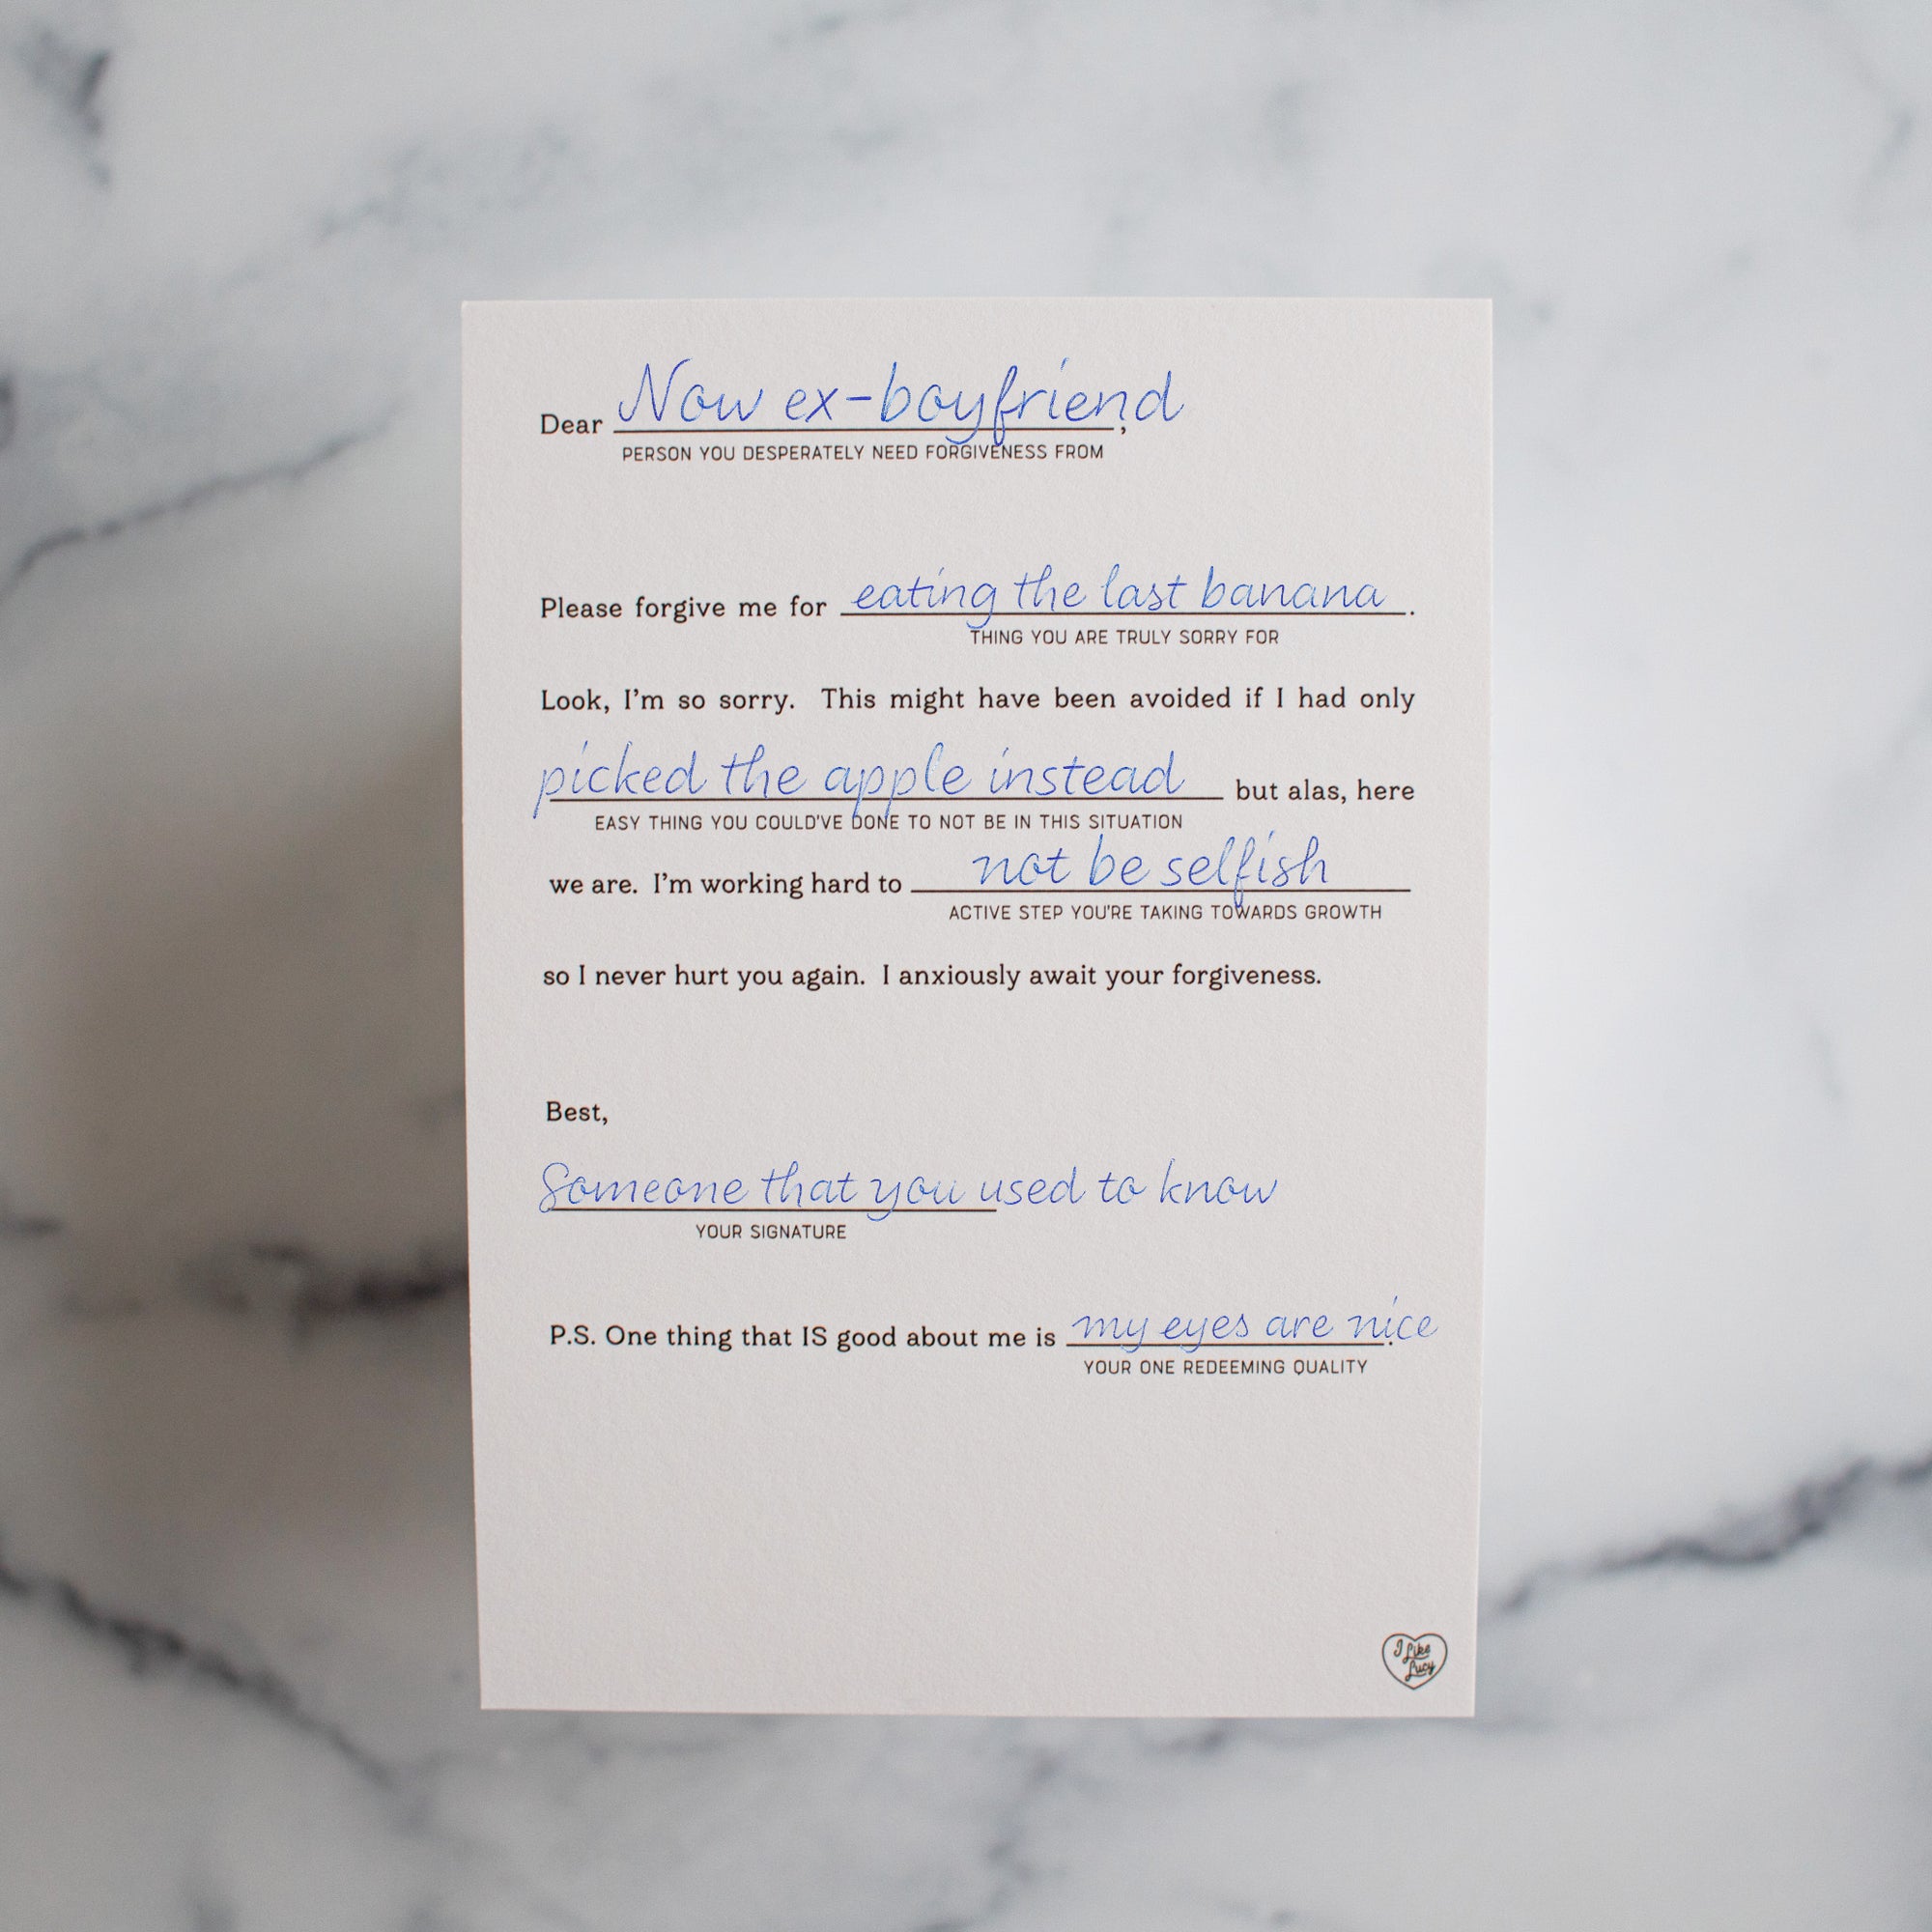 Dear Now ex-boyfriend,
PERSON YOU DESPERATELY NEED FORGIVENESS FROM
Please forgive me for eating the last banana.
THING YOU ARE TRULY SORRY FOR
Look, I'm so sorry. This might have been avoided if I had only
picked the apple instead but alas, here
EASY THING YOU COULD'VE DONE TO NOT BE IN THIS SITUATION
we are. I'm working hard to not be selfish
ACTIVE STEP YOU'RE TAKING TOWARDS GROWTH
so I never hurt you again. I anxiously await your forgiveness.
Best,
Someone that you used to know
YOUR SIGNATURE
P.S. One thing that IS good about me is my eyes are nice.
YOUR ONE REDEEMING QUALITY
I Like
Lucy